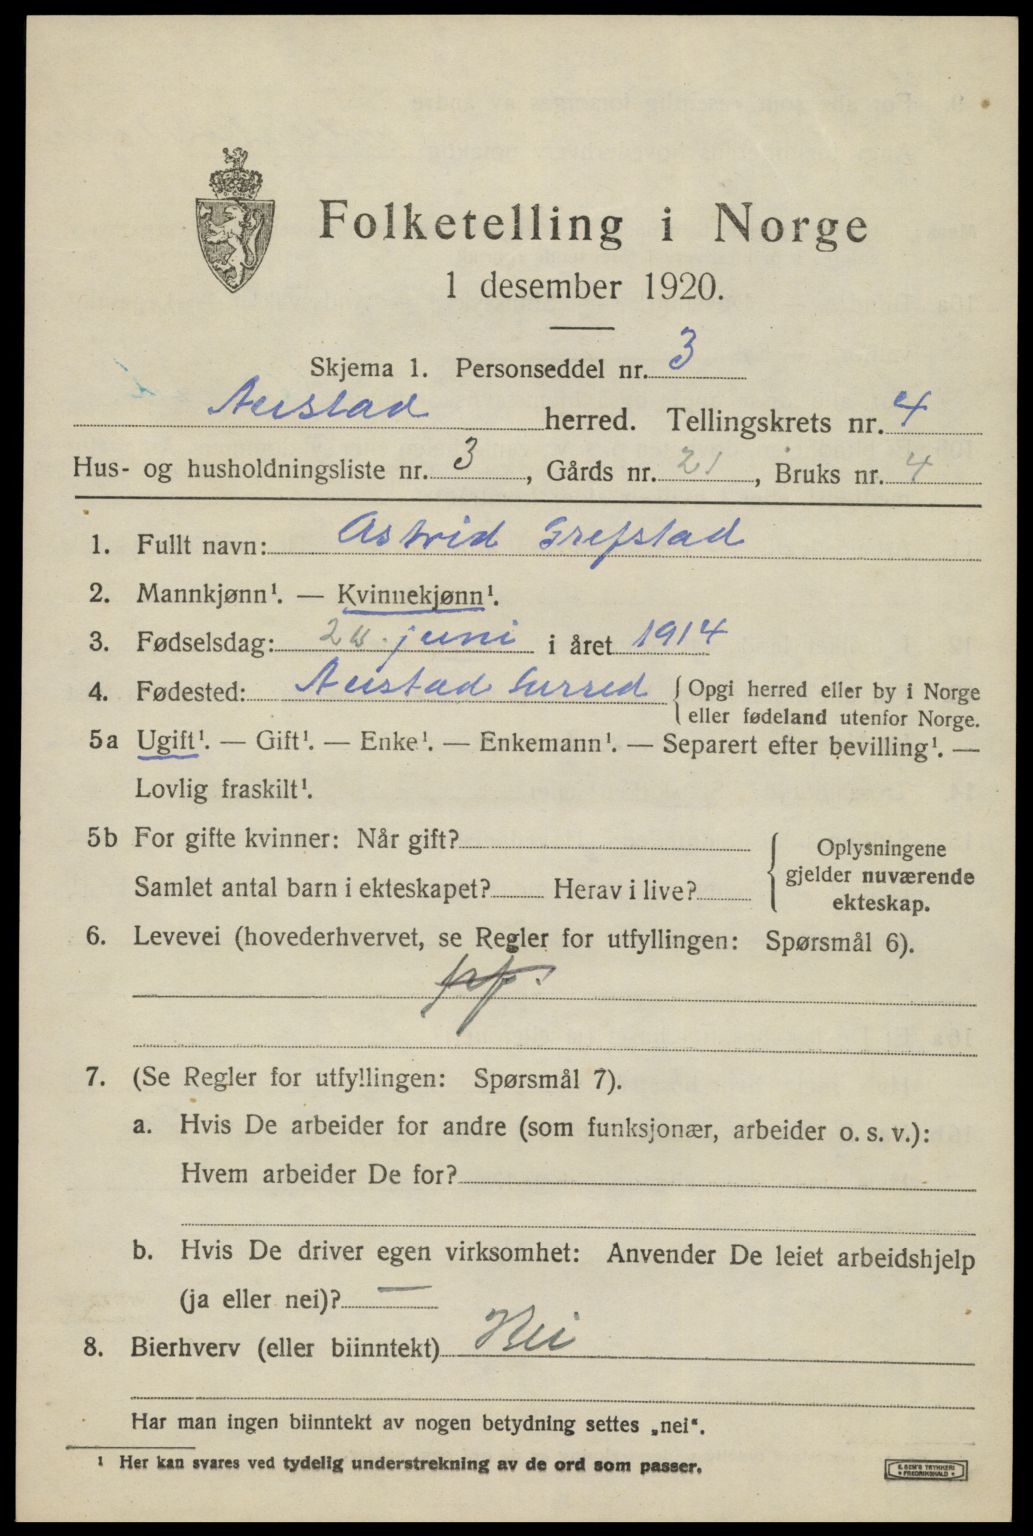 Folketelling i Norge
1 desember 1920.
Skjema 1. Personseddel nr. 3
Austad herred. Tellingskrets nr. 4
Hus- og husholdningsliste nr. 3, Gårds nr. 21, Bruks nr. 4
1. Fullt navn: Astrid Grefstad
2. Mannkjønn¹. — Kvinnekjønn¹.
3. Fødselsdag: juni i året 1914
4. Fødested: Austad herred {Opgi herred eller by i Norge
eller fødeland utenfor Norge.
5a Ugift¹. — Gift¹. — Enke¹. — Enkemann¹. — Separert efter bevilling¹. —
Lovlig fraskilt¹.
5b For gifte kvinner: Når gift?
Samlet antal barn i ekteskapet? Herav i live?
{Oplysningene
gjelder nuværende
ekteskap.
6. Levevei (hovederhvervet, se Regler for utfyllingen: Spørsmål 6).
7. (Se Regler for utfyllingen: Spørsmål 7).
a. Hvis De arbeider for andre (som funksjonær, arbeider o. s. v.):
Hvem arbeider De for?
b. Hvis De driver egen virksomhet: Anvender De leiet arbeidshjelp
(ja eller nei)? —
8. Bierhverv (eller biinntekt) Nei
Har man ingen biinntekt av nogen betydning settes „nei“.
¹ Her kan svares ved tydelig understrekning av de ord som passer.
TRYKKERI
• FREDRIKSHALD •